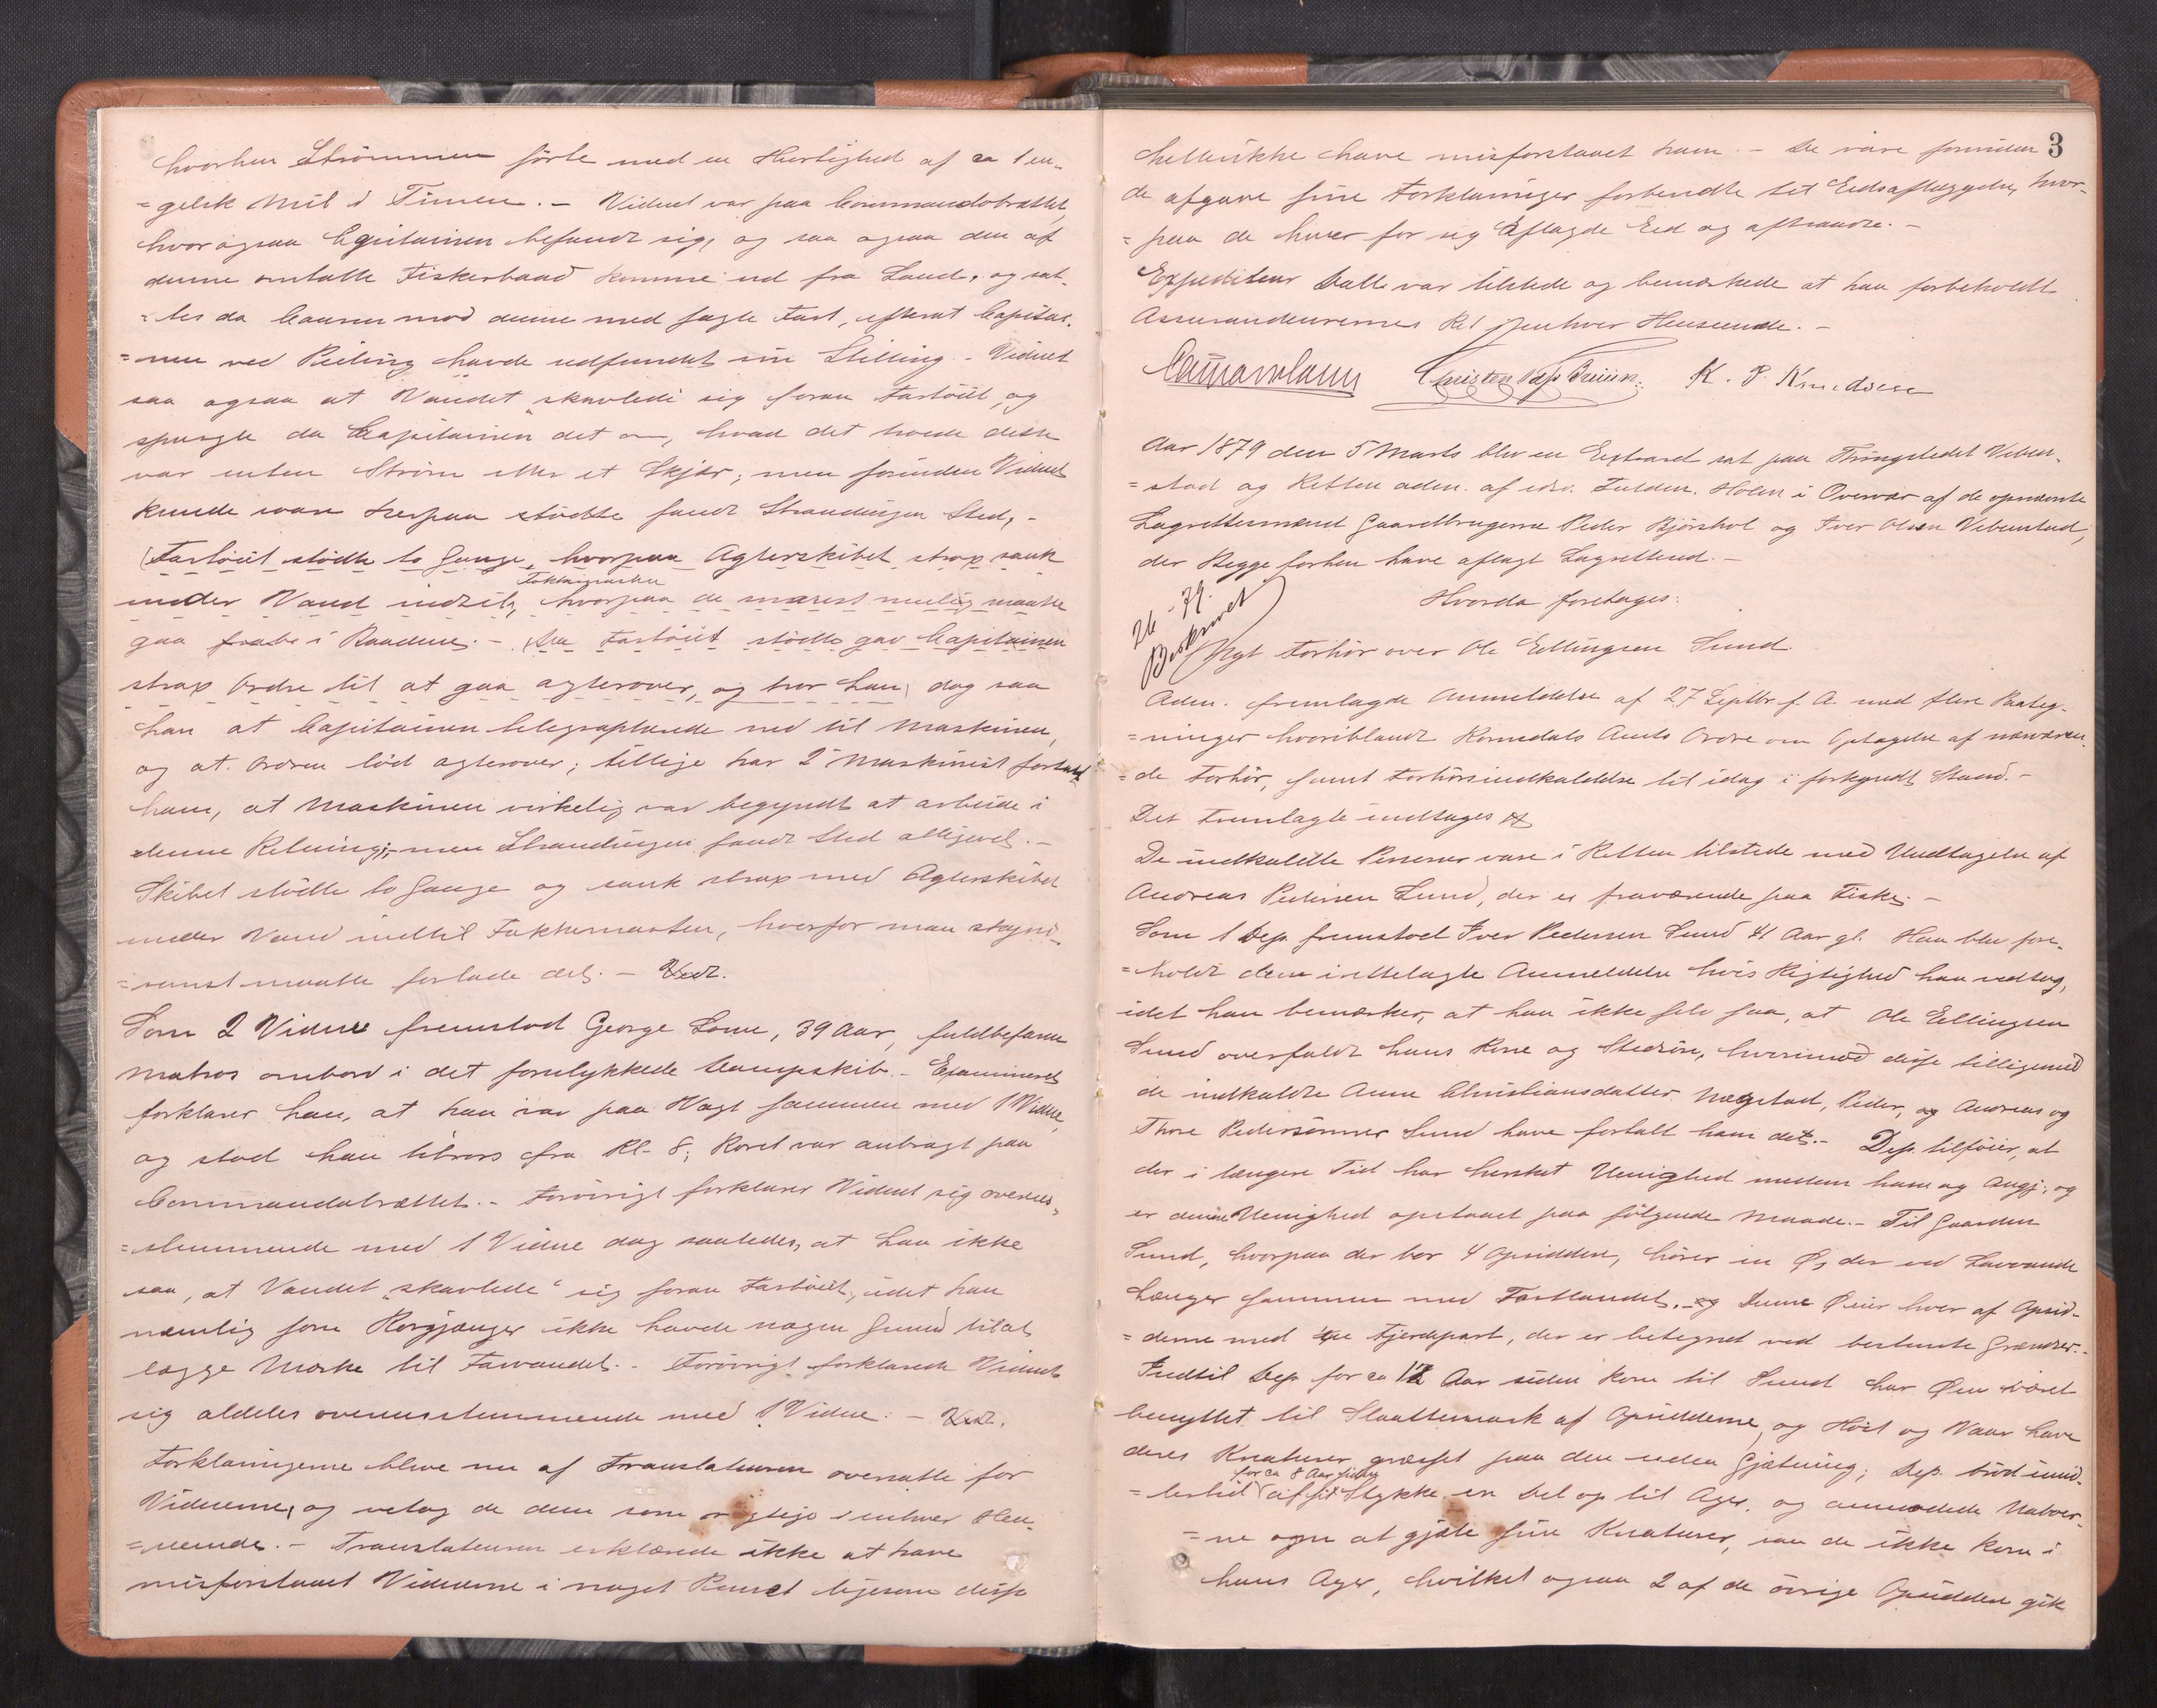 hvorhen Strømmen førte med en Hurtighed af ca 1 en-
=gelsk Mil i Timen. - Vidnet var paa Commandobrættet,
hvor ogsaa Capitainen befandt sig, og saa ogsaa den af
denne omtalte Fiskerbaad komme ud fra Land, og sat-
=tes da Coursen mod denne med sagte Fart, efterat Capitai-
=nen ved Peiling havde udfundet sin Stilling. - Vidnet
saa ogsaa at Vandet "skavlede" sig foran Fartøiet, og
spurgte da Capitainen det om, hvad det troede dette
var enten Strøm eller et Skjær; men forinden Vidnet
kunde svare herpaa stødte fandt Strandingen Sted, -
(Fartøiet stødte to Gange, hvorpaa Agterskibet strax sank
under Vand indtil Fokkemasten, hvorpaa de snarest muligt maatte
gaa fraborde i Baadene. - Da Fartøiet stødte gav Capitainen
strax Ordre til at gaa agterover, og tror han, dog saa
han at Capitainen telegrapherede ned til Maskinen,
og at Ordren lød agterover; tillige har 2 Maskinist fortalt
ham, at Maskinen virkelig var begyndt at arbeide i
denne Retning, - men Strandingen fandt Sted alligevel. -
Skibet stødte to Gange og sank strax med Agterskibet
under Vand indtil Fokkemasten, hvorfor man
maatte forlade det. - Vedt.
Som 2 Vidne fremstod George Lowe, 39 Aar, fuldbefaren
Matros ombord i det forulykkede Dampskib. - Examineret
forklarer han, at han var paa Vagt sammen med 1 Vidne,
og stod han tilrors fra Kl. 8; Roret var anbragt paa
Commandobrættet. - Forøvrigt forklarer Vidnet sig overens-
=stemmende med 1 Vidne dog saaledes, at han ikke
saa, at Vandet "skavlede" sig foran Fartøiet, idet han
nemlig som Rorgjænger ikke havde nogen Grund til at
lægge Mærke til Farvandet. - Forøvrigt forklarede Vidnet
sig aldeles overensstemmende med 1 Vidne. - Vedt.
Forklaringerne bleve nu af Translateuren oversatte for
Vidnerne, og vedtog de dem som rigtige i enhver Hen-
=seende. - Translateuren erklærede ikke at have
misforstaaet Vidnerne i noget Punct ligesom disse
3
hellerikke have misforstaaet ham. - De vare forinden
de afgave sine Forklaringer forberedte til Edsaflæggelse, hvor-
=paa de hver for sig aflagde Eed og aftraadte. -
Expediteur Dall var tilstede og bemærkede at han forbeholdt
Assurandeurernes Ret i enhver Henseende. -
K. P. Knudsen
Aar 1879 den 5 Marts blev en Extraret sat paa Thingstedet Veben-
=stad og Retten adm. af edsv. Fuldm. Holm i Overvær af de opnævnte
Lagrettesmænd Gaardbrugerne Peder Bjørshol og Iver Olsen Vebenstad,
der Begge forhen have aflagt Lagretteed. -
Hvorda foretages:
26 - 79.
Beskrevet
Nyt Forhør over Ole Ellingsen Sund.
Adm. fremlagde Anmeldelse af 27 Septbr f. A. med flere Paateg-
=ninger hvoriblandt Romsdals Amts Ordre om Optagelse af nærværen-
=de Forhør, samt Forhørsindkaldelse til idag i forkyndt Stand. -
Det Fremlagte indtages
De indkaldte Personer vare i Retten tilstede med Undtagelse af
Andreas Pedersen Sund, der er fraværende paa Fiske. -
Som 1 Dep. fremstod Iver Pedersen Sund 41 Aar gl. Han blev fore-
=holdt den irettelagte Anmeldelse hvis Rigtighed han vedtog,
idet han bemærker, at han ikke selv saa, at Ole Ellingsen
Sund overfaldt hans Kone og Stedsøn, hvorimod disse tilligemed
de indkaldte Anne Christiansdatter Nægstad, Peder, og Andreas og
Thore Pedersønner Sund have fortalt ham det. - Dep. tilføier, at
der i længere Tid har hersket Uenighed mellem ham og Angj., og
er denne Uenighed opstaaet paa følgende Maade. - Til Gaarden
Sund, hvorpaa der bor 4 Opsiddere, hører en Ø, der ved Lavvande
hænger sammen med Fastlandet, og denne Ø eier hver af Opsid-
=derne med en Fjerdepart, der er betegnet ved bestemte Grændser. -
Indtil Dep. for ca 12 Aar siden kom til Sund har Øen været
benyttet til Slaattemark af Opsidderne, og Høst og Vaar have
deres Kreaturer græsset paa den uden Gjætning; Dep. brød imid-
=lertid for ca 8 Aar siden af sit Stykke en Del op til Ager, og anmodede Naboer-
=ne om at gjæte sine Kreaturer, saa de ikke kom i
hans Ager, hvilket ogsaa 2 af de øvrige Opsiddere gik